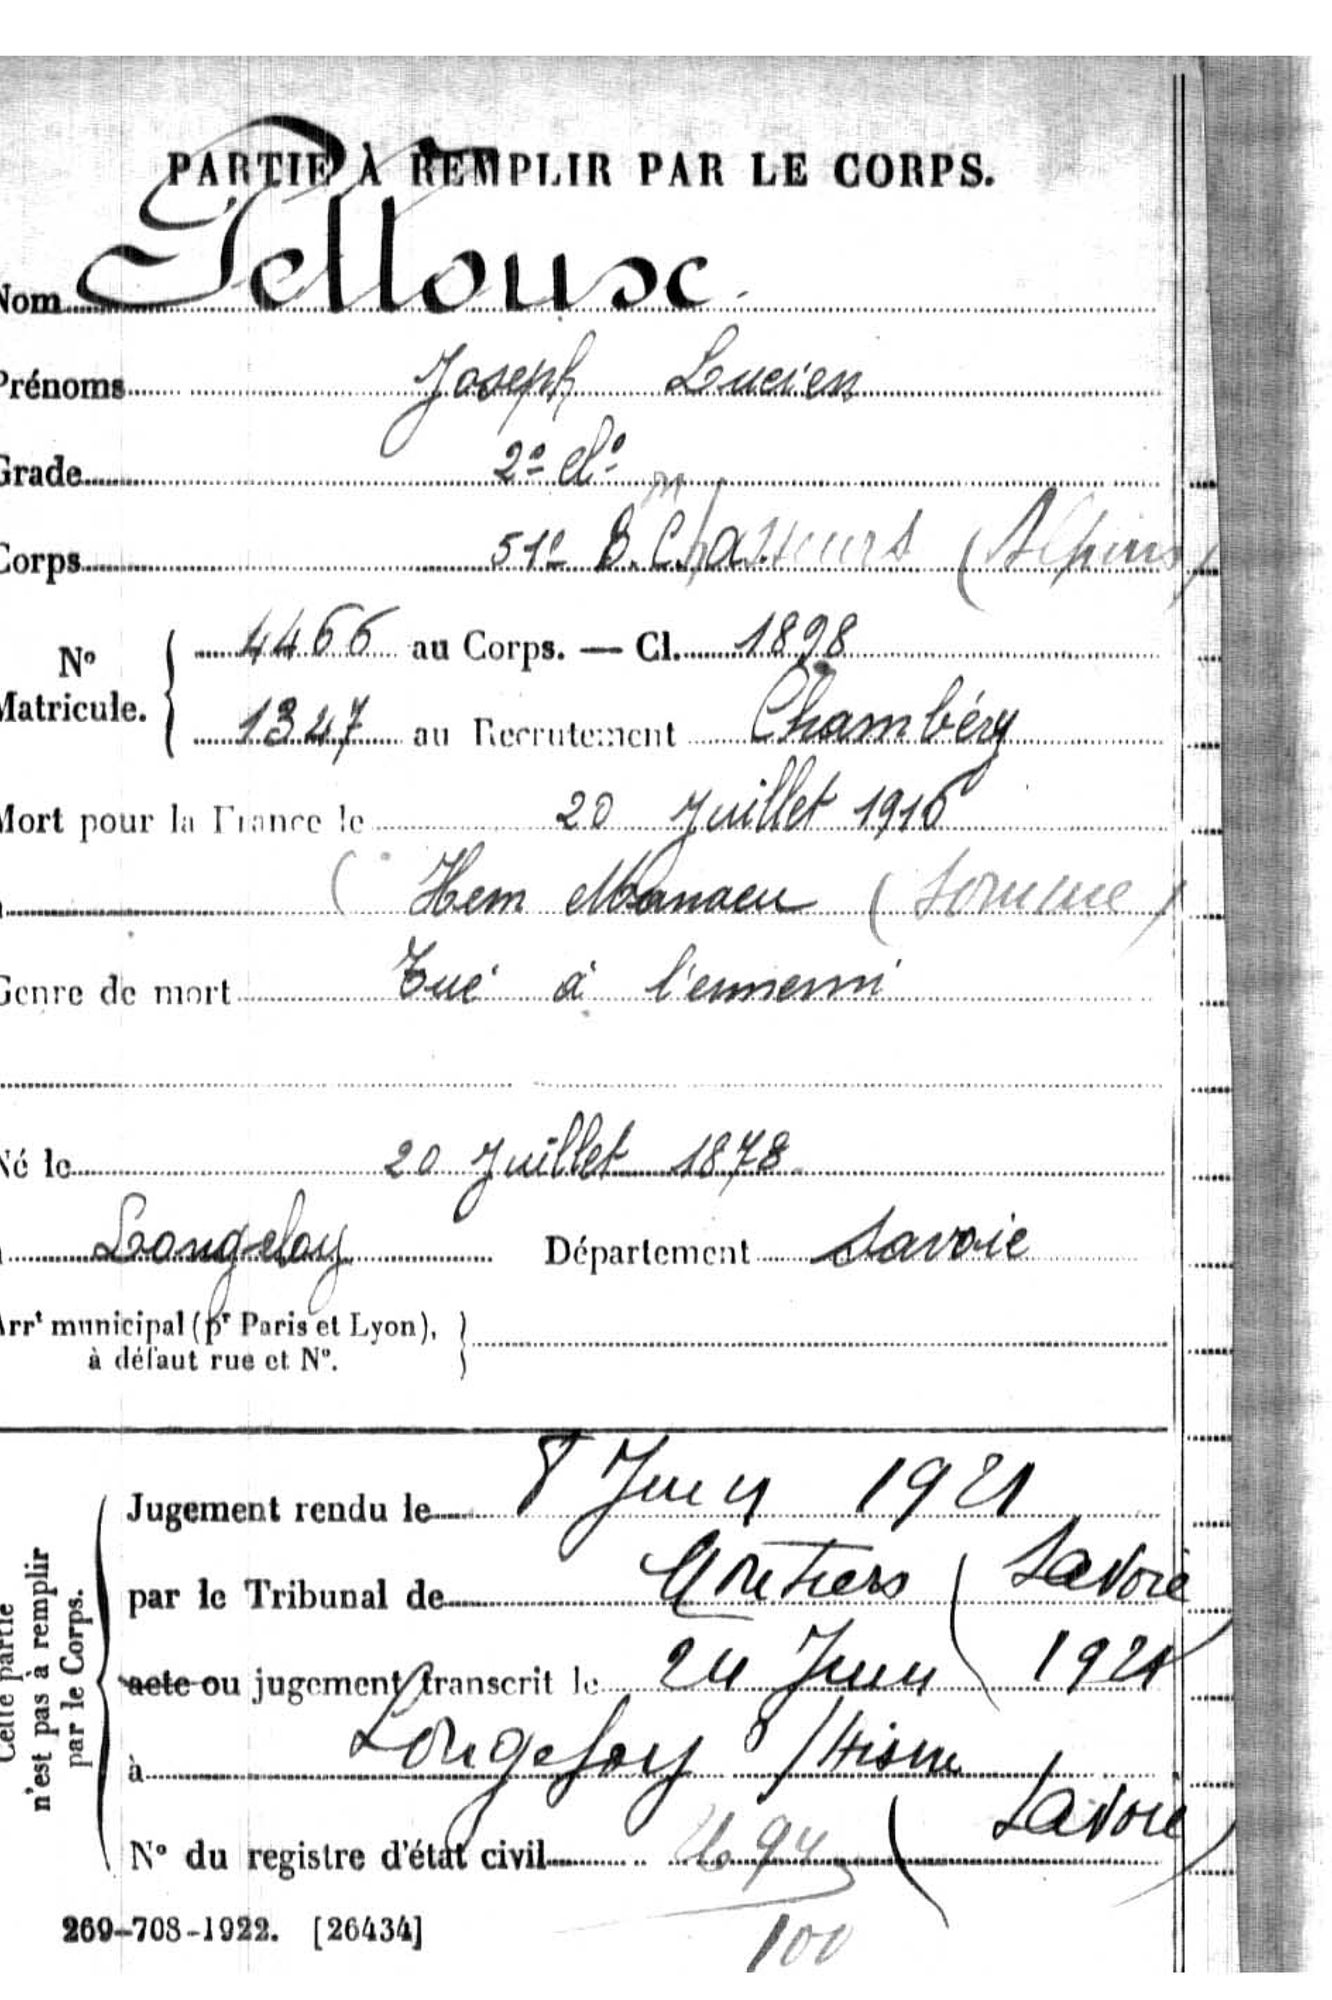 PARTIE À REMPLIR PAR LE CORPS.
Nom Pelloux
Prénoms Joseph Lucien
Grade 2e Cl.
Corps 51e B.on Chasseurs (Alpins)
No Matricule. 4466 au Corps. — Cl. 1898
1347 au Recrutement Chambéry
Mort pour la France le 20 Juillet 1916
Hem Monacu (Somme)
Genre de mort Tué à l'ennemi
Né le 20 Juillet 1878
Longefoy Département Savoie
Arrt municipal (pr Paris et Lyon),
à défaut rue et No.
Cette partie
n'est pas à remplir
par le Corps.
Jugement rendu le 8 Juin 1921
par le Tribunal de Moutiers (Savoie
acte ou jugement transcrit le 24 Juin 1921
à Longefoy s/
Savoie)
No du registre d'état civil
100
269-708-1922. [26434]